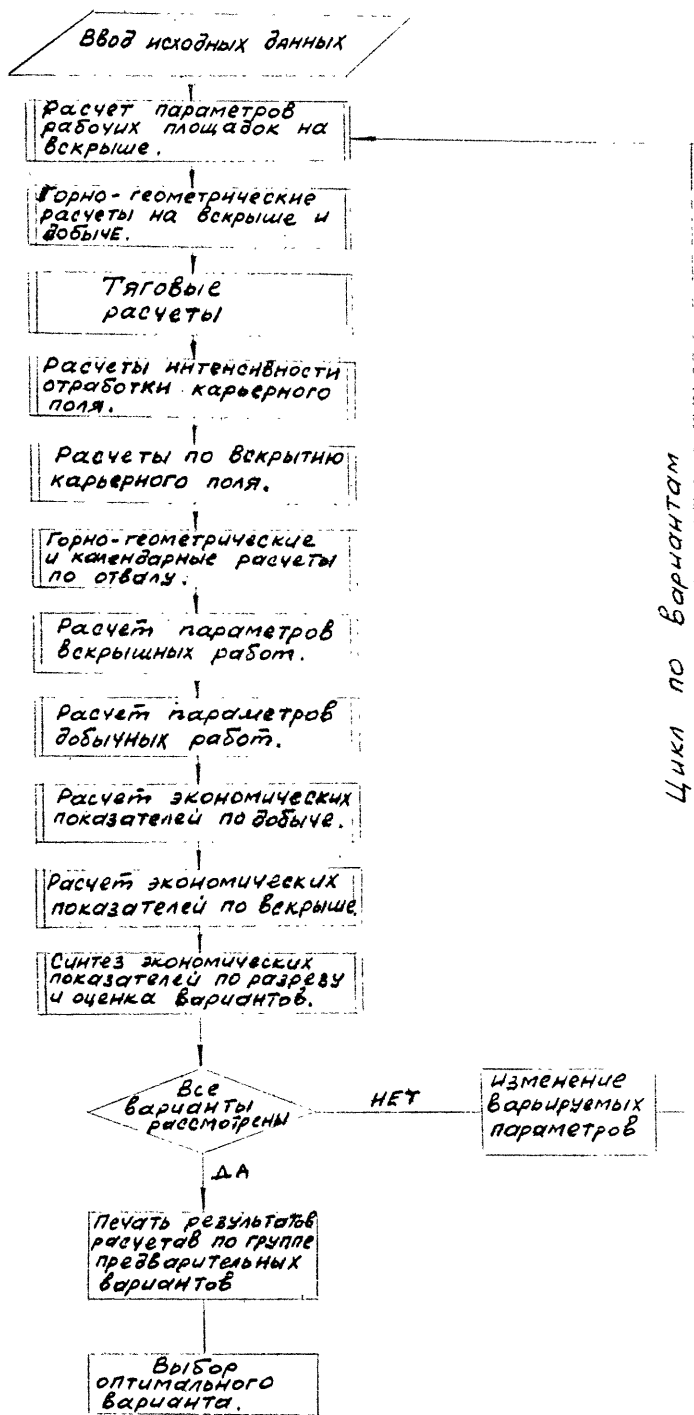 Ввод исходных данных
Расчет параметров
рабочих площадок на
вскрыше.
Горно-геометрические
расчеты на вскрыше и
добыче.
Тяговые
расчеты
Расчеты интенсивности
отработки карьерного
поля.
Расчеты по вскрытию
карьерного поля.
Горно-геометрические
и календарные расчеты
по отвалу.
Расчет параметров
вскрышных работ.
Расчет параметров
добычных работ.
Расчет экономических
показателей по добыче.
Расчет экономических
показателей по вскрыше.
Синтез экономических
показателей по разрезу
и оценка вариантов.
Все
варианты
рассмотрены
НЕТ
Изменение
варьируемых
параметров
Цикл по вариантам
ДА
Печать результатов
расчетав по группе
предварительных
вариантов
Выбор
оптимального
варианта.